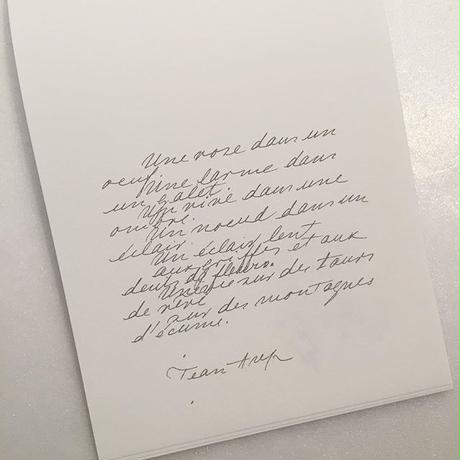 Une rose dans un
oeuf.
Une larme dans
un galet.
Un dans une
ombre.
Un noeud dans un
éclair.
Un éclair lent
aux griffes et aux
dents de fleurs.
Une vie sur des tours
de rêve
sur des montagnes
d'écume.
Jean Arp